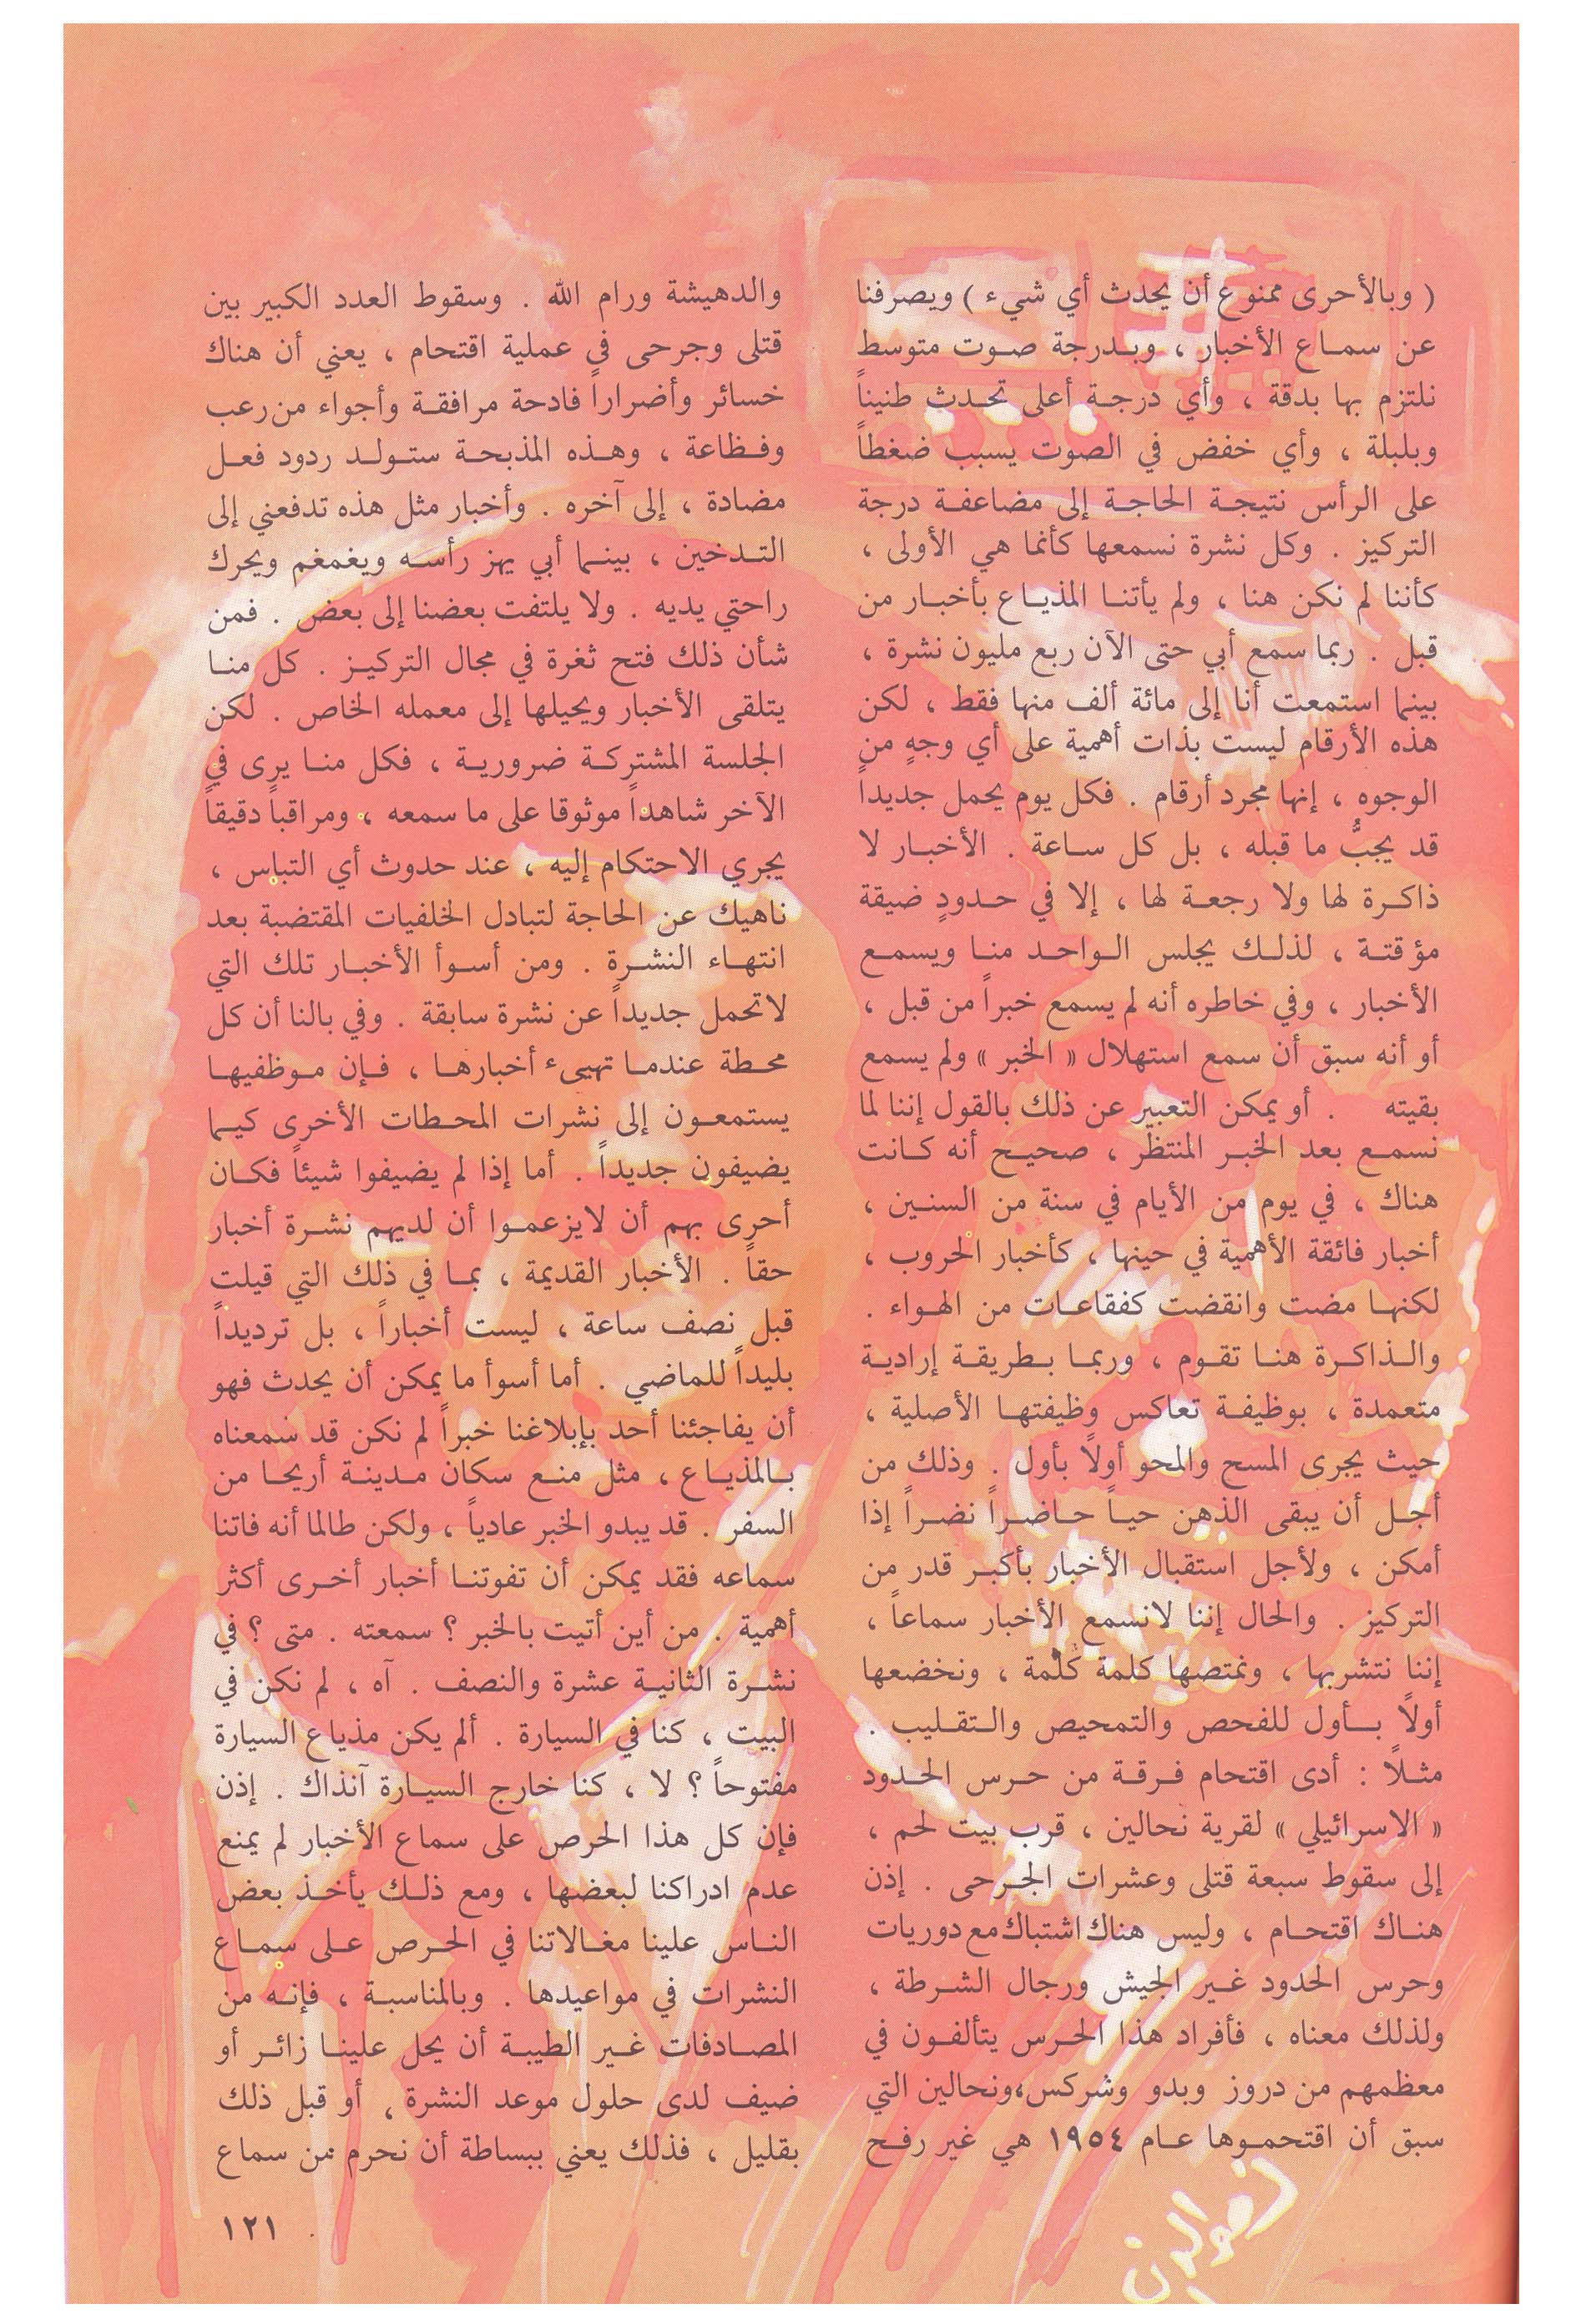 ( وبالأحرى ممنوع أن يحدث أي شيء ) ويصرفنا
عن سماع الأخبار ، وبدرجة صوت متوسط
نلتزم بها بدقة ، وأي درجة أعلى تحدث طنيناً
وبلبلة ، وأي خفض في الصوت يسبب ضغطاً
على الرأس نتيجة الحاجة إلى مضاعفة درجة
التركيز . وكل نشرة نسمعها كأنما هي الأولى ،
كأننا لم نكن هنا ، ولم يأتنا المذياع بأخبار من
قبل . ربما سمع أبي حتى الآن ربع مليون نشرة ،
بينما استمعت أنا إلى مائة ألف منها فقط ، لكن
هذه الأرقام ليست بذات أهمية على أي وجهٍ من
الوجوه ، إنها مجرد أرقام . فكل يوم يحمل جديداً
قد يجبُّ ما قبله ، بل كل ساعة . الأخبار لا
ذاكرة لها ولا رجعة لها ، إلا في حدودٍ ضيقة
مؤقتة ، لذلك يجلس الواحد منا ويسمع
الأخبار ، وفي خاطره أنه لم يسمع خبراً من قبل ،
أو أنه سبق أن سمع استهلال « الخبر » ولم يسمع
بقيته . أو يمكن التعبير عن ذلك بالقول إننا لما
نسمع بعد الخبر المنتظر ، صحيح أنه كانت
هناك ، في يوم من الأيام في سنة من السنين ،
أخبار فائقة الأهمية في حينها ، كأخبار الحروب ،
لكنها مضت وانقضت كفقاعات من الهواء .
والذاكرة هنا تقوم ، وربما بطريقة إرادية
متعمدة ، بوظيفة تعاكس وظيفتها الأصلية ،
حيث يجرى المسح والمحو أولاً بأول . وذلك من
أجل أن يبقى الذهن حياً حاضراً نضراً إذا
أمكن ، ولأجل استقبال الأخبار بأكبر قدر من
التركيز . والحال إننا لانسمع الأخبار سماعاً ،
إننا نتشربها ، ونمتصها كلمة كلمة ، ونخضعها
أولاً بأول للفحص والتمحيص والتقليب .
مثلاً : أدى اقتحام فرقة من حرس الحدود
« الاسرائيلي » لقرية نحالين ، قرب بيت لحم ،
إلى سقوط سبعة قتلى وعشرات الجرحى . إذن
هناك اقتحام ، وليس هناك اشتباك مع دوريات
وحرس الحدود غير الجيش ورجال الشرطة ،
ولذلك معناه ، فأفراد هذا الحرس يتألفون في
معظمهم من دروز وبدو وشركس،ونحالين التي
سبق أن اقتحموها عام ١٩٥٤ هي غير رفح
والدهيشة ورام الله . وسقوط العدد الكبير بين
قتلى وجرحى في عملية اقتحام ، يعني أن هناك
خسائر وأضراراً فادحة مرافقة وأجواء من رعب
وفظاعة ، وهذه المذبحة ستولد ردود فعل
مضادة ، إلى آخره . وأخبار مثل هذه تدفعني إلى
التدخين ، بينما أبي يهز رأسه ويغمغم ويحرك
راحتي يديه . ولا يلتفت بعضنا إلى بعض . فمن
شأن ذلك فتح ثغرة في مجال التركيز . كل منا
يتلقى الأخبار ويحيلها إلى معمله الخاص . لكن
الجلسة المشتركة ضرورية ، فكل منا يرى في
الآخر شاهداً موثوقا على ما سمعه ، ومراقباً دقيقاً
يجري الاحتكام إليه ، عند حدوث أي التباس ،
ناهيك عن الحاجة لتبادل الخلفيات المقتضبة بعد
انتهاء النشرة . ومن أسوأ الأخبار تلك التي
لاتحمل جديداً عن نشرة سابقة . وفي بالنا أن كل
محطة عندما تهييء أخبارها ، فإن موظفيها
يستمعون إلى نشرات المحطات الأخرى كيما
يضيفون جديداً . أما إذا لم يضيفوا شيئاً فكان
أحرى بهم أن لايزعموا أن لديهم نشرة أخبار
حقاً . الأخبار القديمة ، بما في ذلك التي قيلت
قبل نصف ساعة ، ليست أخباراً ، بل ترديداً
بليداً للماضي . أما أسوأ ما يمكن أن يحدث فهو
أن يفاجئنا أحد بإبلاغنا خبراً لم نكن قد سمعناه
بالمذياع ، مثل منع سكان مدينة أريحا من
السفر . قد يبدو الخبر عادياً ، ولكن طالما أنه فاتنا
سماعه فقد يمكن أن تفوتنا أخبار أخرى أكثر
أهمية . من أين أتيت بالخبر ؟ سمعته . متى ؟ في
نشرة الثانية عشرة والنصف . آه ، لم نكن في
البيت ، كنا في السيارة . ألم يكن مذياع السيارة
مفتوحاً ؟ لا ، كنا خارج السيارة آنذاك . إذن
فإن كل هذا الحرص على سماع الأخبار لم يمنع
عدم ادراكنا لبعضها ، ومع ذلك يأخذ بعض
الناس علينا مغالاتنا في الحرص على سماع
النشرات في مواعيدها . وبالمناسبة ، فإنه من
المصادفات غير الطيبة أن يحل علينا زائر أو
ضيف لدى حلول موعد النشرة ، أو قبل ذلك
بقليل ، فذلك يعني ببساطة أن نحرم من سماع
١٢١